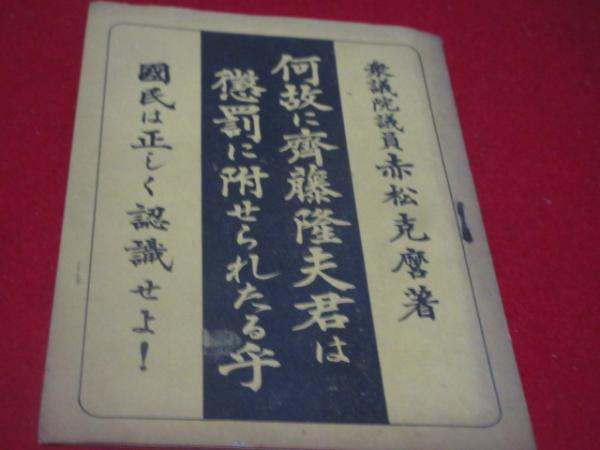 衆議院議員 赤松克麿著
何故に齊藤隆夫君は
懲罰に附せられたる乎
國民は正しく認識せよ！